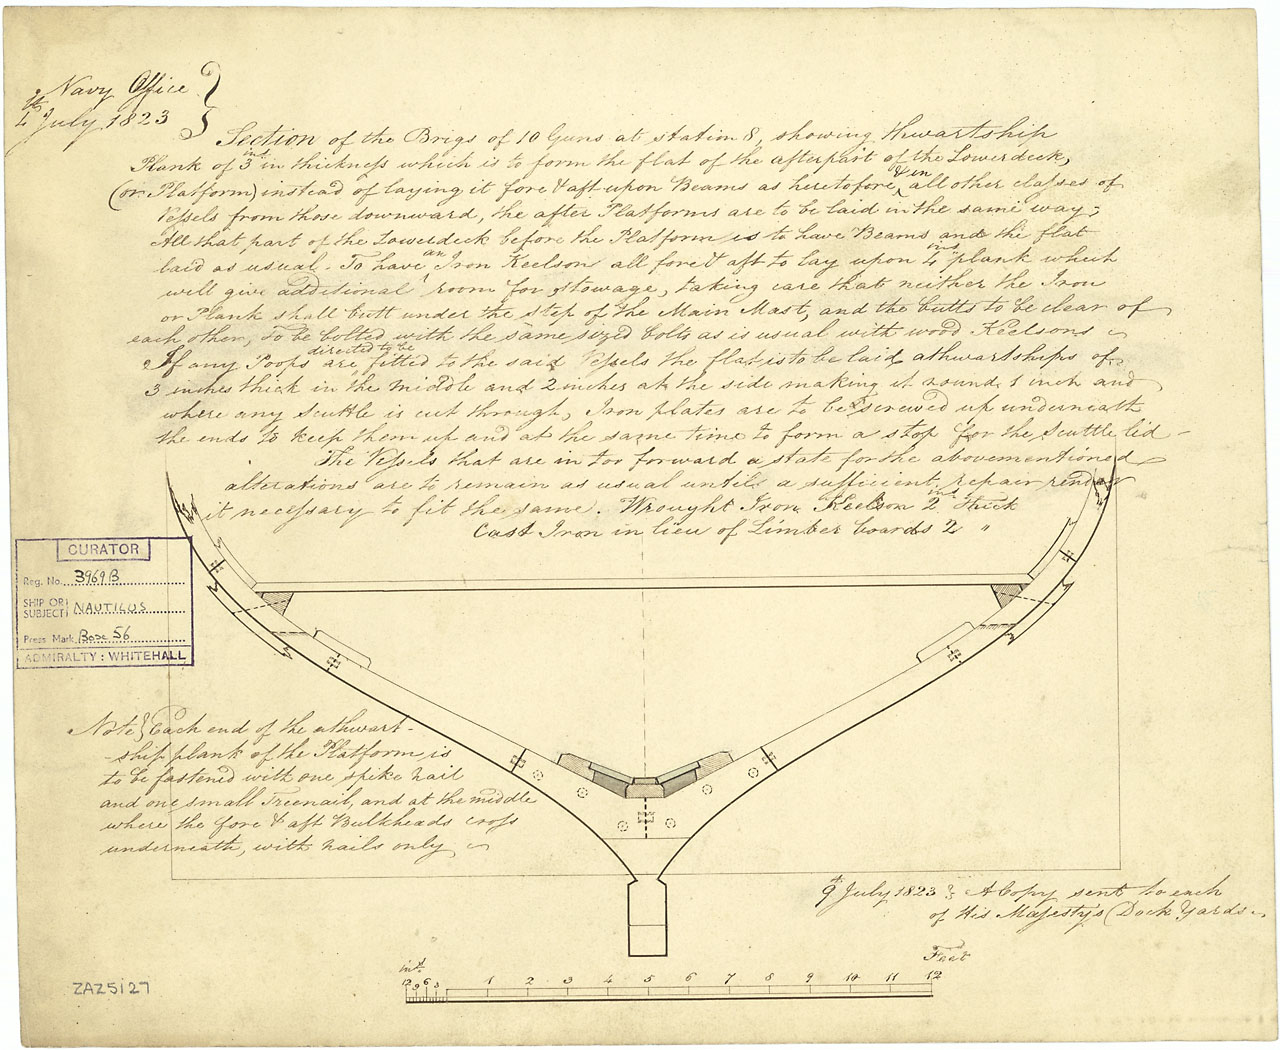 Navy Office
4th July 1823
Section of the Brigs of 10 Guns at station 8, showing thwartship
Plank of 3 ins in thickness which is to form the flat of the afterpart of the Lowerdeck,
(or Platform) instead of laying it fore & aft upon Beams as heretofore, & in all other classes of
Vessels from those downward, the after Platforms are to be laid in the same way;
All that part of the Lowerdeck before the Platform is to have Beams and the flat
laid as usual - To have an Iron Keelson all fore & aft to lay upon 4 ins plank which
will give additional room for stowage, taking care that neither the Iron
or Plank shall butt under the step of the Main Mast, and the butts to be clear of
each other, to be bolted with the same sized bolts as is usual with wood Keelsons
If any Poops are directed to be fitted to the said Vessels the flat is to be laid athwartships of
3 inches thick in the middle and 2 inches at the side making it round 1 inch and
where any Scuttle is cut through, Iron plates are to be screwed up underneath
the ends to keep them up and at the same time to form a stop for the Scuttle lid -
The Vessels that are in too forward a state for the abovementioned
alterations are to remain as usual untill a sufficient repair render
it necessary to fit the same. Wrought Iron Keelson 2 ins thick
Cast Iron in lieu of Limber boards 2 "
CURATOR
Reg. No. 3969B
SHIP OR SUBJECT NAUTILUS
Press Mark Box 56
ADMIRALTY: WHITEHALL
Note } Each end of the athwart-
-ship plank of the Platform is
to be fastened with one spike nail
and one small Treenail, and at the middle
where the fore & aft Bulkheads cross
underneath, with nails only
9th July 1823 } A Copy sent to each
of His Majesty's Dock Yards
ZAZ5127
ins. Feet
12 9 6 3 1 2 3 4 5 6 7 8 9 10 11 12